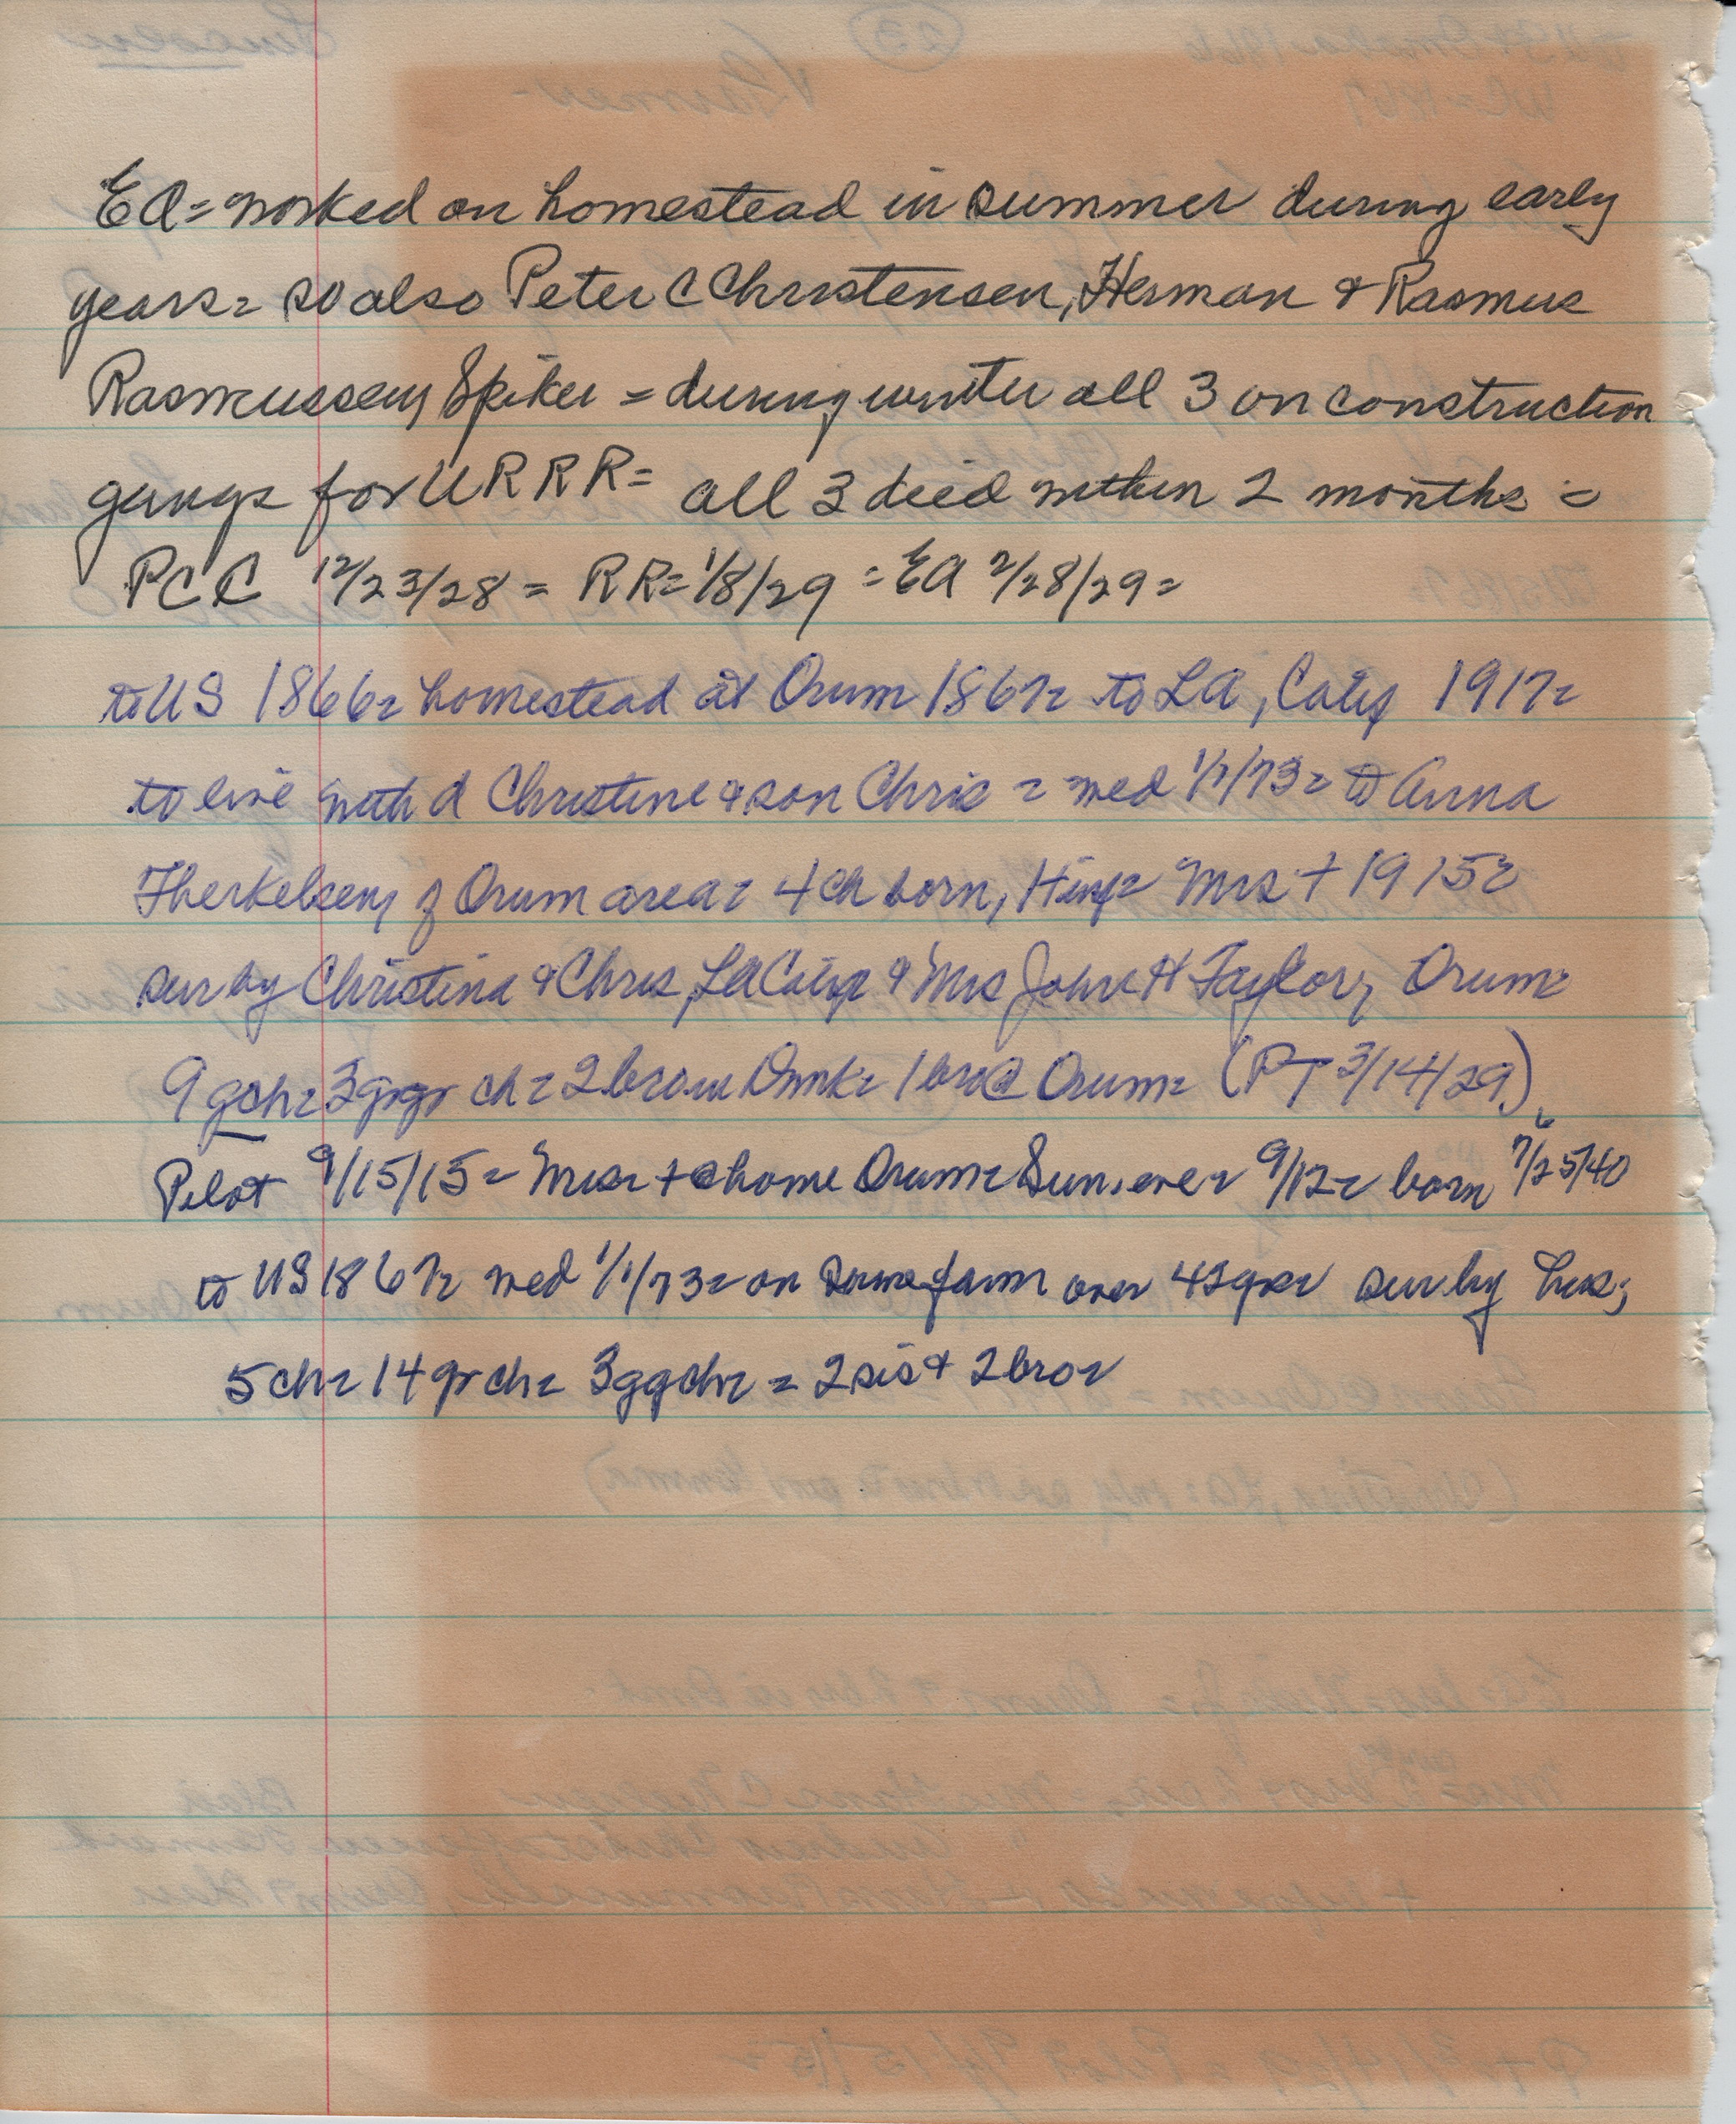 EA = worked on homestead in summer during early
years = so also Peter C Christensen, Herman & Rasmus
Rasmussen, Spiker = during winter all 3 on construction
gangs for U R R R = all 3 died within 2 months =
PCC 12/23/28 = RR = 1/8/29 = EA 2/28/29 =
to US 1866 = homestead at Orum 1867 = to LA, Calif 1917 =
to live with d Christine & son Chris = med 1/1/73 = to Anna
Therkelsen, of Orum area = 4 ch born, = Mrs + 1915 =
sur by Christina & Chris, LA Calif & Mrs John H Taylor, Orum =
9 gch = 3 grgr ch = 2 bro in Dmk = 1 bro @ Orum = (PT 3/14/29)
Pilot 9/15/15 = Mrs + @ home Orum = Sun. eve = 9/12 = born 7/25/40
to US 1867 = med 1/1/73 = on same farm over 42 yrs = sur by hus;
5 ch = 14 gr ch = 3 ggch = = 2 sis & 2 bro =